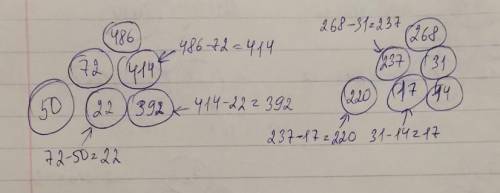 486
72 414
486-72=414
50 22 392
414-22=392
72-50=22
268-31=237
268
237 31
220 17 14
237-17=220
31-14=17